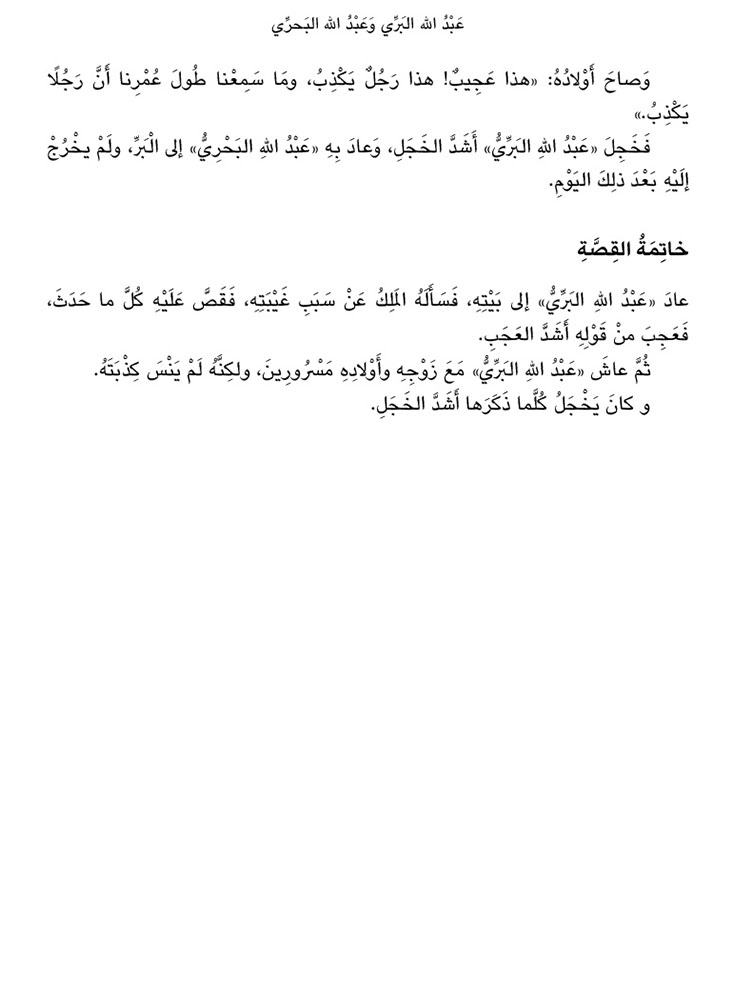 عَبْدُ الله البَرِّي وَعَبْدُ الله البَحرِّي
وَصاحَ أَوْلادُهُ: «هذا عَجِيبٌ! هذا رَجُلٌ يَكْذِبُ، ومَا سَمِعْنا طُولَ عُمْرِنا أَنَّ رَجُلًا
يَكْذِبُ.»
فَخَجِلَ «عَبْدُ اللهِ البَرِّيُّ» أَشَدَّ الخَجَلِ، وَعادَ بِهِ «عَبْدُ اللهِ البَحْرِيُّ» إلى الْبَرِّ، ولَمْ يخْرُجْ
إلَيْهِ بَعْدَ ذلِكَ اليَوْمِ.
خاتِمَةُ القِصَّةِ
عادَ «عَبْدُ اللهِ البَرِّيُّ» إلى بَيْتِهِ، فَسَأَلَهُ المَلِكُ عَنْ سَبَبِ غَيْبَتِهِ، فَقَصَّ عَلَيْهِ كُلَّ ما حَدَثَ،
فَعَجِبَ منْ قَوْلِهِ أَشَدَّ العَجَبِ.
ثُمَّ عاشَ «عَبْدُ اللهِ البَرِّيُّ» مَعَ زَوْجِهِ وأَوْلادِهِ مَسْرُورِينَ، ولكِنَّهُ لَمْ يَنْسَ كِذْبَتَهُ.
و كانَ يَخْجَلُ كُلَّما ذَكَرَها أَشَدَّ الخَجَلِ.